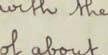 with the
of about